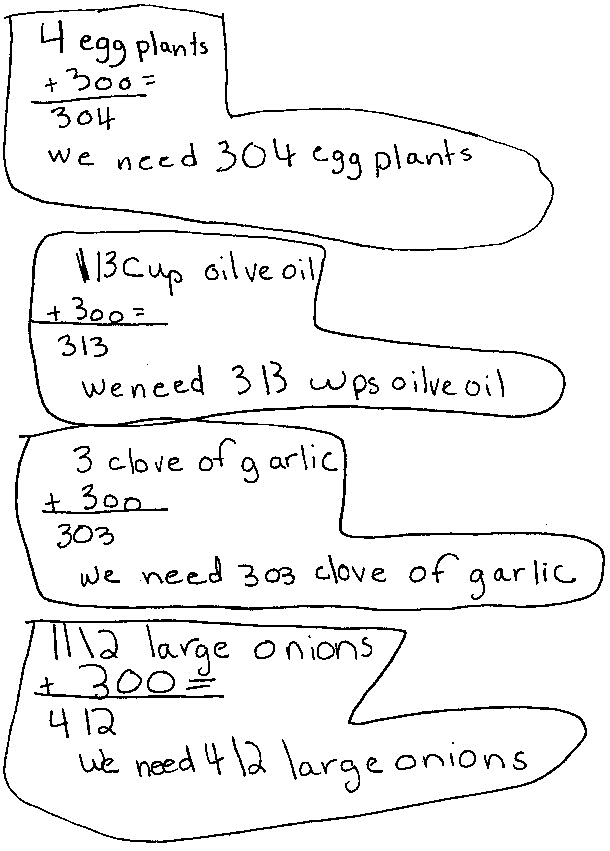 4 egg plants
+ 300 =
304
we need 304 egg plants
1/3 cup oilve oil
+ 300 =
313
we need 313 cups oilve oil
3 clove of garlic
+ 300
303
we need 303 clove of garlic
1 1\2 large onions
+ 300 =
412
we need 412 large onions